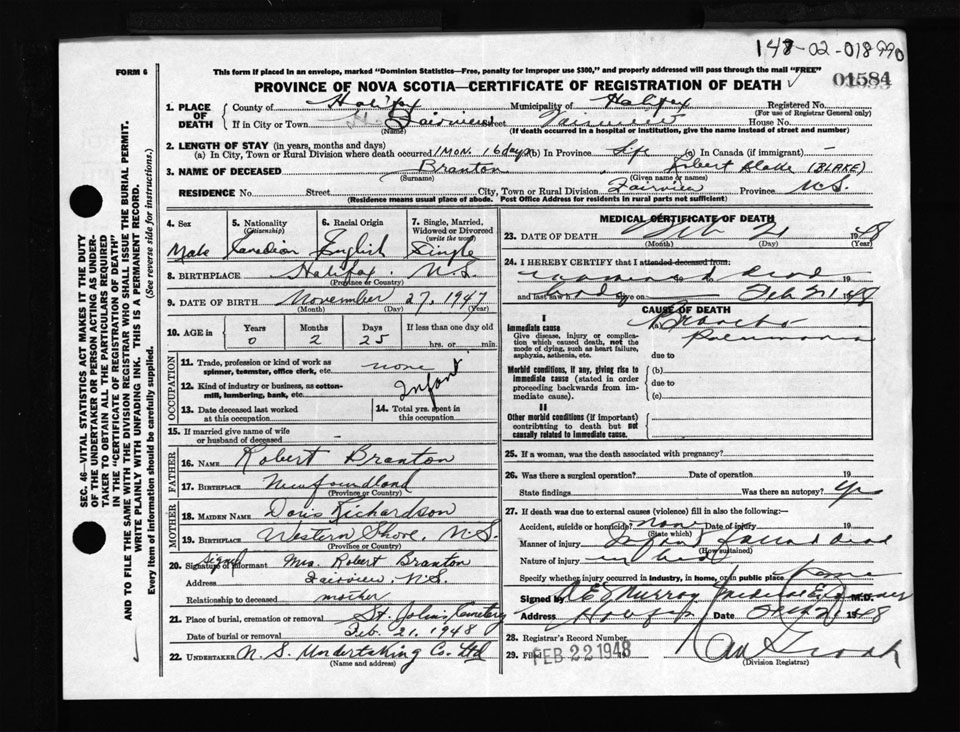 148-02-018990
01584
FORM 6
This form if placed in an envelope, marked "Dominion Statistics—Free, penalty for improper use $300," and properly addressed will pass through the mail "FREE"
PROVINCE OF NOVA SCOTIA—CERTIFICATE OF REGISTRATION OF DEATH
1. PLACE OF DEATH
County of Halifax Municipality of Halifax Registered No.
(For use of Registrar General only)
If in City or Town Fairview Street Fairview House No.
(Name) (If death occurred in a hospital or institution, give the name instead of street and number)
2. LENGTH OF STAY (in years, months and days)
(a) In City, Town or Rural Division where death occurred 1 Mon. 16 days (b) In Province Life (c) In Canada (if immigrant) —
3. NAME OF DECEASED Branton, Robert Blake (BLAKE)
(Surname) (Given name or names)
RESIDENCE No. Street City, Town or Rural Division Fairview Province N.S.
(Residence means usual place of abode. Post Office Address for residents in rural parts not sufficient)
4. Sex 5. Nationality (Citizenship) 6. Racial Origin 7. Single, Married, Widowed or Divorced (write the word)
Male Canadian English Single
8. BIRTHPLACE Halifax, N.S.
(Province or Country)
9. DATE OF BIRTH November 27, 1947
(Month) (Day) (Year)
10. AGE in Years Months Days If less than one day old
0 2 25 hrs. or min.
OCCUPATION
11. Trade, profession or kind of work as spinner, teamster, office clerk, etc. none
12. Kind of industry or business, as cotton-mill, lumbering, bank, etc. Infant
13. Date deceased last worked at this occupation
14. Total yrs. spent in this occupation
15. If married give name of wife or husband of deceased
FATHER
16. NAME Robert Branton
17. BIRTHPLACE Newfoundland
(Province or Country)
MOTHER
18. MAIDEN NAME Doris Richardson
19. BIRTHPLACE Western Shore, N.S.
(Province or Country)
signed
20. Signature of informant Mrs. Robert Branton
Address Fairview, N.S.
Relationship to deceased mother
21. Place of burial, cremation or removal St. John's Cemetery
Date of burial or removal Feb. 21, 1948
22. UNDERTAKER N.S. Undertaking Co. Ltd
(Name and address)
MEDICAL CERTIFICATE OF DEATH
23. DATE OF DEATH Feb 21 1948
(Month) (Day) (Year)
24. I HEREBY CERTIFY that I attended deceased from:
examined dead 19
and last saw h body alive on Feb 21 1948
CAUSE OF DEATH
I
Immediate cause
Give disease, injury or complication which caused death, not the mode of dying, such as heart failure, asphyxia, asthenia, etc.
(a) Broncho Pneumonia
due to
Morbid conditions, if any, giving rise to immediate cause (stated in order proceeding backwards from immediate cause).
(b)
due to
(c)
II
Other morbid conditions (if important) contributing to death but not causally related to immediate cause.
25. If a woman, was the death associated with pregnancy?
26. Was there a surgical operation? Date of operation 19
State findings Was there an autopsy? yes
27. If death was due to external causes (violence) fill in also the following:—
Accident, suicide or homicide? None Date of injury 19
(State which)
Manner of injury Infant found dead
(How sustained)
Nature of injury in bed
Specify whether injury occurred in industry, in home, or in public place home
Signed by E Murray Medical Examiner M.D.
Address Halifax Date Feb 21 1948
28. Registrar's Record Number
29. Filed FEB 22 1948 19
(Division Registrar)
SEC. 46—VITAL STATISTICS ACT MAKES IT THE DUTY
OF THE UNDERTAKER OR PERSON ACTING AS UNDER-
TAKER TO OBTAIN ALL THE PARTICULARS REQUIRED
IN THE "CERTIFICATE OF REGISTRATION OF DEATH"
AND TO FILE THE SAME WITH THE DIVISION REGISTRAR WHO SHALL ISSUE THE BURIAL PERMIT.
WRITE PLAINLY WITH UNFADING INK. THIS IS A PERMANENT RECORD.
Every item of information should be carefully supplied. (See reverse side for instructions.)